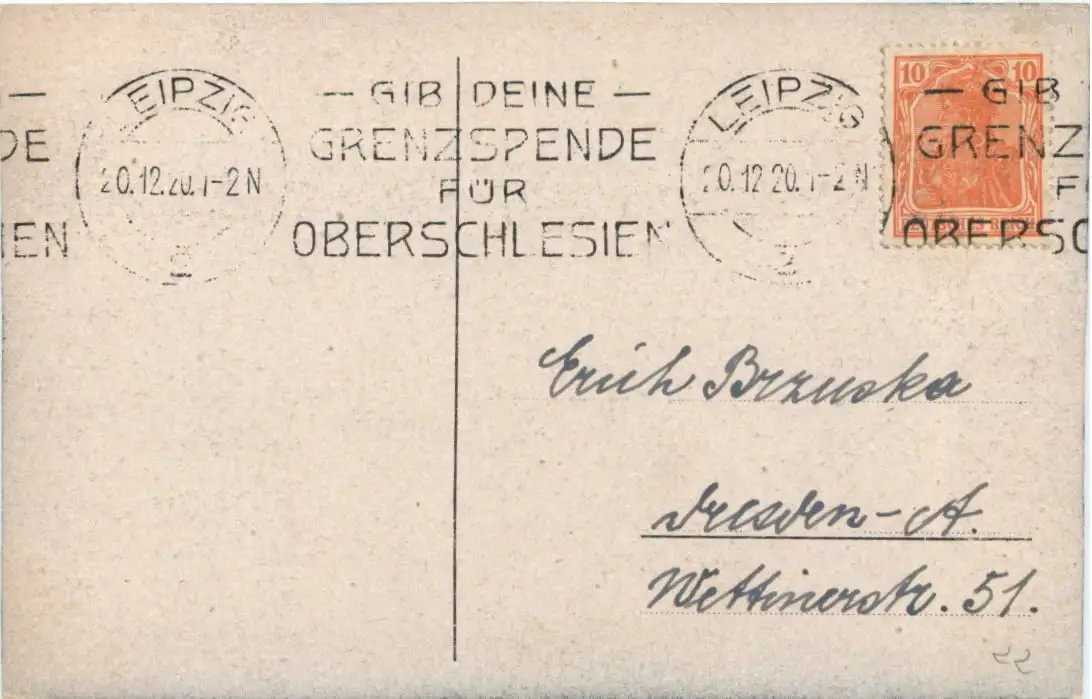 LEIPZIG
20.12.20. 1-2 N
2
— GIB DEINE —
GRENZSPENDE
FÜR
OBERSCHLESIEN
LEIPZIG
20.12.20. 1-2 N
2
10 10
— GIB
GRENZ
F
OBERSC
DE
IEN
Erich Brzuska
Dresden-A.
Wettinerstr. 51.
22